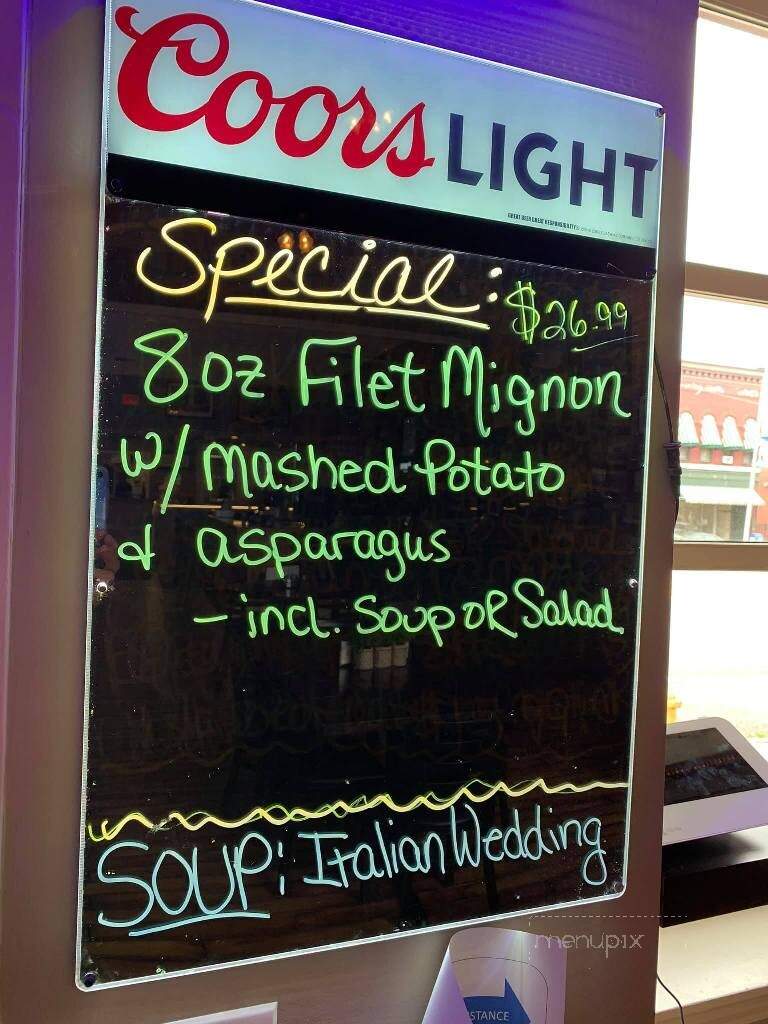 Coors LIGHT
GREAT BEER GREAT RESPONSIBILITY®
Special:
$26.99
8oz Filet Mignon
w/ Mashed Potato
& asparagus
- incl. Soup OR Salad
SOUP: Italian Wedding
menupix
STANCE